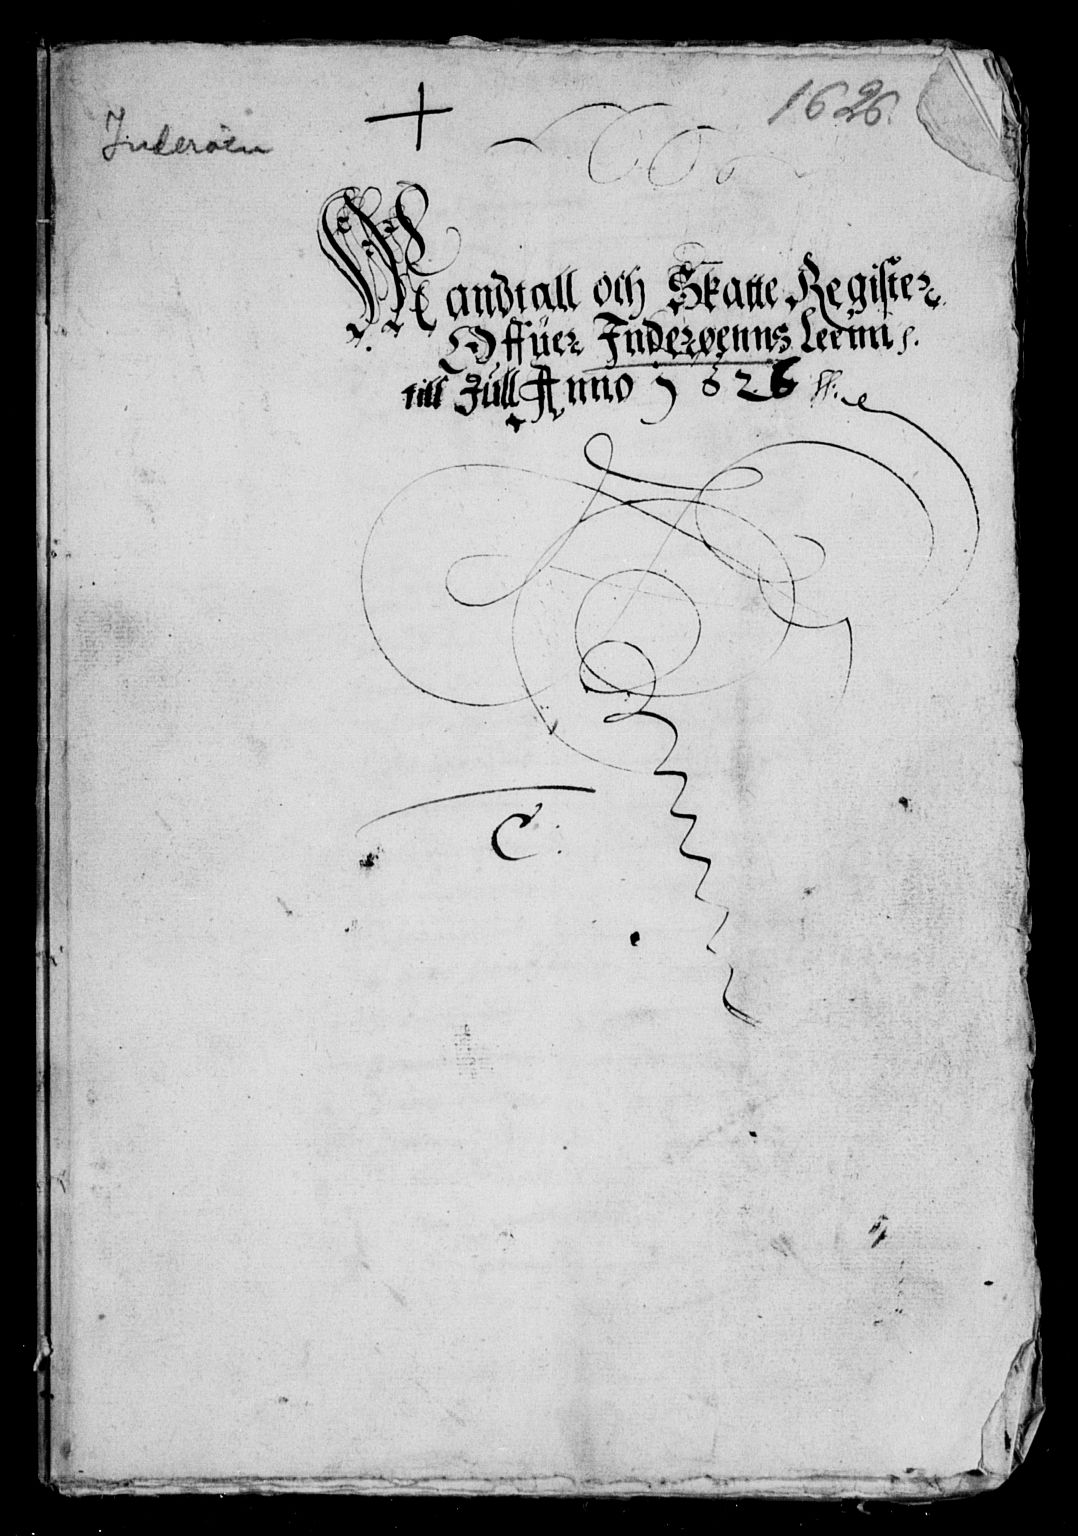 Inderøen
1626.
Mandtall och Skatte Register
Offuer Inderøenns Leenn
till Jull Anno 1626
C: